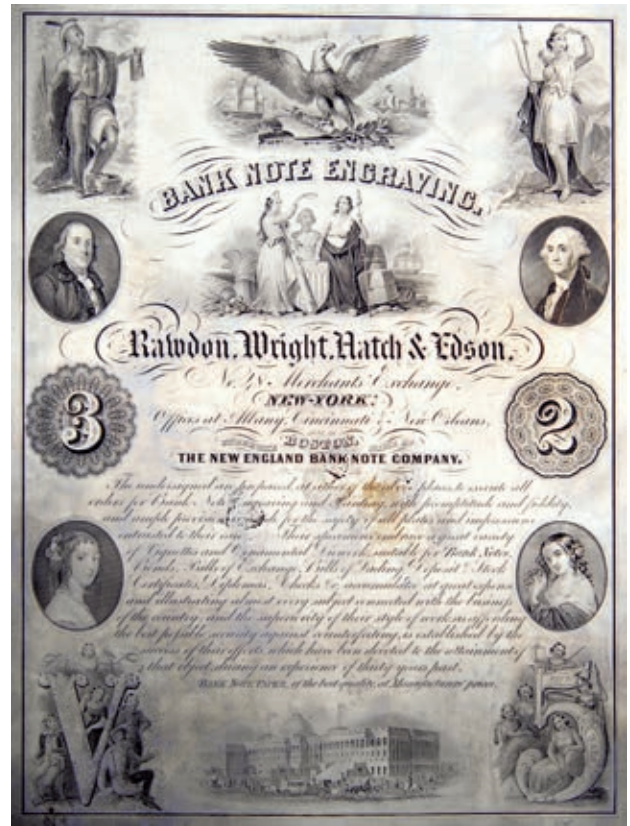 BANK NOTE ENGRAVING.
Rawdon, Wright, Hatch & Edson.
Merchants' Exchange,
NEW-YORK.
Offices at Albany, Cincinnati & New Orleans,
BOSTON,
3
2
THE NEW ENGLAND BANK NOTE COMPANY.
The undersigned are prepared at either of the above places to execute all
orders for Bank Note Engraving and Printing, with promptitude and fidelity,
and ample provision is made for the safety of all plates and impressions
entrusted to their care. Their specimens embrace a great variety
of Vignettes and Ornamental Diework, suitable for Bank Notes,
Bonds, Bills of Exchange, Bills of Lading, Deposit & Stock
Certificates, Diplomas, Checks &c. accumulated at great expense
and illustrating almost every subject connected with the business
of the country; and the superiority of their style of work, as affording
the best possible security against counterfeiting, is established by the
success of their efforts which have been devoted to the attainment of
that object, during an experience of thirty years past.
BANK NOTE PAPER, of the best quality, at Manufacturers' prices.
V
5